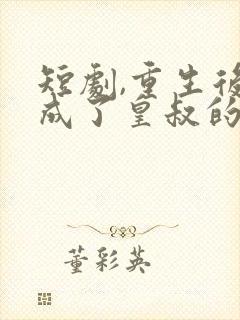 短劇,重生後
成了皇叔的
董彩英